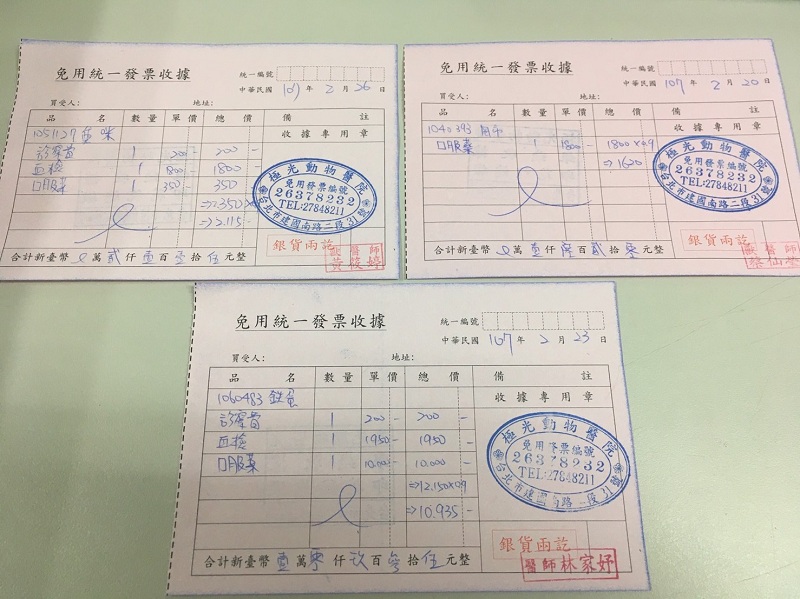 免用統一發票收據
統一編號
中華民國 107 年 2 月 26 日
買受人： 地址：
品名 數量 單價 總價 備註
收據專用章
1051127 咪
診察費 1 200- 200-
血檢 1 1800- 1800-
口服藥 1 350- 350
⇒2.350×
⇒2.115-
極光動物醫院
免用發票編號
26378232
TEL:27848211
台北市建國南路二段31號
銀貨兩訖
獸醫師
黃筱婷
合計新臺幣 萬貳仟壹百壹拾伍元整
免用統一發票收據
統一編號
中華民國 107 年 2 月 20 日
買受人： 地址：
品名 數量 單價 總價 備註
收據專用章
1040393
口服藥 1 1800- 1800×0.9
⇒1620
極光動物醫院
免用發票編號
26378232
TEL:27848211
台北市建國南路二段31號
銀貨兩訖
獸醫師
合計新臺幣 萬壹仟陸百貳拾零元整
免用統一發票收據
統一編號
中華民國 107 年 2 月 23 日
買受人： 地址：
品名 數量 單價 總價 備註
收據專用章
1060483 蛋
診察費 1 200- 200-
血檢 1 1950- 1950-
口服藥 1 10.000- 10.000-
⇒12.150×0.9
⇒10.935-
極光動物醫院
免用發票編號
26378232
TEL:27848211
台北市建國南路二段31號
銀貨兩訖
醫師林家妤
合計新臺幣壹萬零仟玖百參拾伍元整